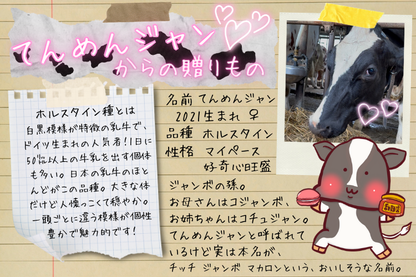 てんめんジャン
からの贈りもの
ホルスタイン種とは
白黒模様が特徴の乳牛で、
ドイツ生まれの人気者!1日に
50%以上の牛乳を出す個体
も多い。日本の乳牛のほと
んどがこの品種。大きな体
だけど人懐っこくて穏やか。
一頭ごとに違う模様が個性
豊かで魅力的です!
名前 てんめんジャン
2021生まれ ♀
品種 ホルスタイン
性格 マイペース
好奇心旺盛
ジャンボの孫。
お母さんはコジャンボ、
お姉ちゃんはコチュジャン。
てんめんジャンと呼ばれて
いるけど実は本名が、
チッチ ジャンボ マカロンという、おいしそうな名前。